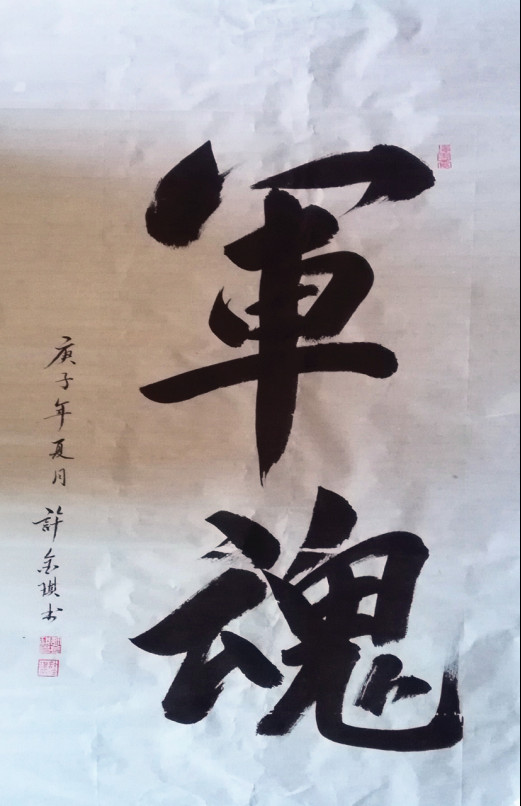 軍
魂
庚子年夏月
許金琪书